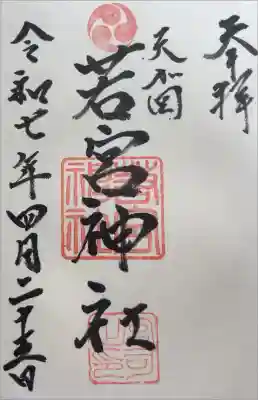 奉拝
若宮神社
令和七年四月二十五日